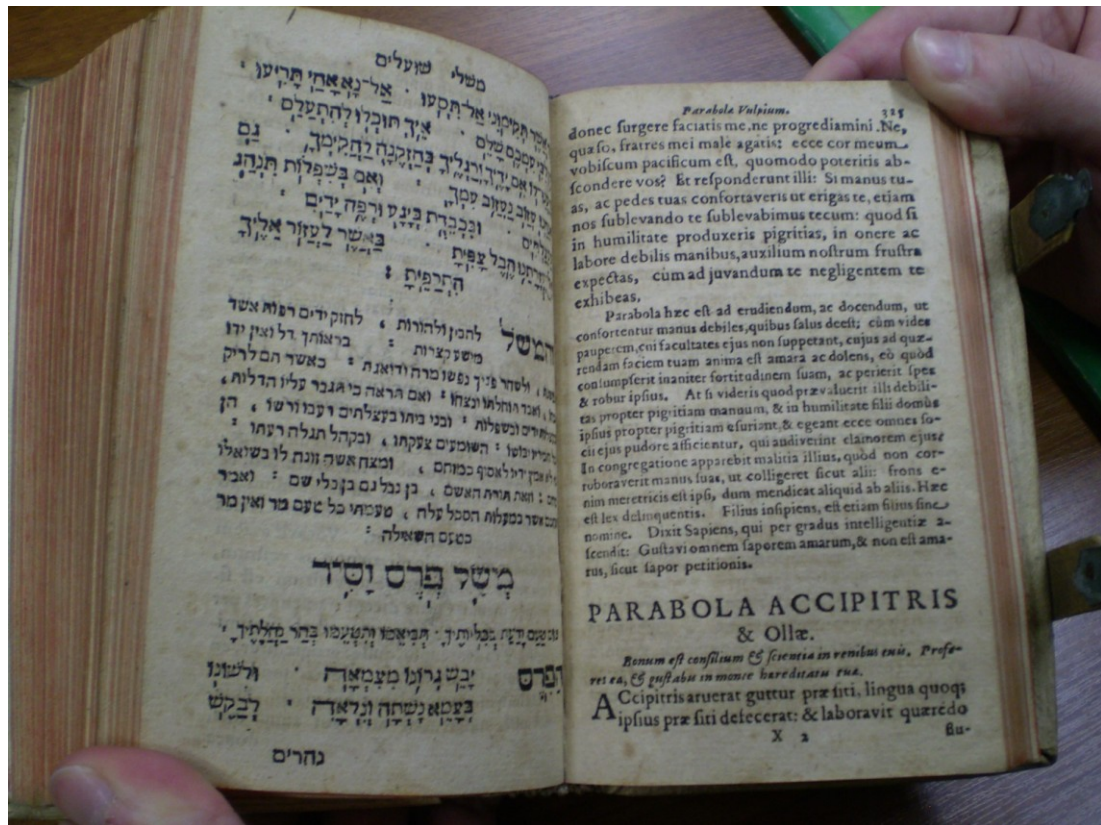 משלי שועלים
תקימוני אל־תסעו · אל־נא אחי תריעו ·
איך תוכלו להתעלם
ידיך ורגליך בחזקנה להקימך · גם
עזוב נעזוב עמך · ואם בשפלות תנהג
ובכבדת ביגע ורפה ידים
הבל צפית · באשר לעזור אליך
התרפית :
המשל להבין ולהורות , לחזק ידים רפות אשר
בראותך דל ואין ידו
ולשחר פניך נפשו מרה ודואגת : כאשר תם לריק
ואבד תוחלתו ונצחו : ואם תראה כי תגבר עליו הדלות ,
ידים ובשפלות : ובני ביתו בעצלתים רעבו ורשו , הן
השומעים צעקתו , ובקהל תגלה רעתו :
ידיו לאסוף כמוהם , ומצח אשה זונה לו בשיאלו
וזאת תורת האשם , בן נבל גם בן בלי שם : ואמר
אשר במעלות השכל עלה , טעמתי כל טעם מר ואין מר
כטעם השאילה :
משל פרס וסיר
טעם ודעת בכליותיך · תביאמו ותטעמו בהר נחלתיך ·
הפרס יבש גרונו מצמאה · ולשונו
בצמא נשתה ונלאדה · לבקש
נהרים
Parabola Vulpium. 325
donec surgere faciatis me, ne progrediamini. Ne,
quæso, fratres mei male agatis: ecce cor meum
vobiscum pacificum est, quomodo poteritis ab-
scondere vos? Et responderunt illi: Si manus tu-
as, ac pedes tuas confortaveris ut erigas te, etiam
nos sublevando te sublevabimus tecum: quod si
in humilitate produxeris pigritias, in onere ac
labore debilis manibus, auxilium nostrum frustra
expectas, cùm ad juvandum te negligentem te
exhibeas.
Parabola hæc est ad erudiendum, ac docendum, ut
confortentur manus debiles, quibus salus deest; cùm vides
pauperem, cui facultates ejus non suppetant, cujus ad quæ-
rendam faciem tuam anima est amara ac dolens, eò quòd
consumpserit inaniter fortitudinem suam, ac perierit spes
& robur ipsius. At si videris quod prævaluerit illi debili-
tas propter pigritiam manuum, & in humilitate filii domûs
ipsius propter pigritiam esuriant, & egeant ecce omnes so-
cii ejus pudore afficientur, qui audiverint clamorem ejus:
In congregatione apparebit malitia illius, quòd non cor-
roboraverit manus suas, ut colligeret sicut alii: frons e-
nim meretricis est ipsi, dum mendicat aliquid ab aliis. Hæc
est lex delinquentis. Filius insipiens, est etiam filius sine
nomine. Dixit Sapiens, qui per gradus intelligentiæ a-
scendit: Gustavi omnem saporem amarum, & non est ama-
rus, sicut sapor petitionis.
PARABOLA ACCIPITRIS
& Ollæ.
Bonum est consilium & scientia in renibus tuis. Profe-
res ea, & gustabis in monte hereditatis tuæ.
ACcipitris aruerat guttur præ siti, lingua quoq;
ipsius præ siti defecerat: & laboravit quærēdo
X 2 flu-